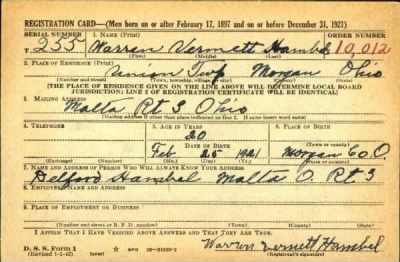 REGISTRATION CARD—(Men born on or after February 17, 1897 and on or before December 31, 1921)
SERIAL NUMBER 1. NAME (Print) ORDER NUMBER
T 255 Warren Vermett Hambel 10,012
(First) (Middle) (Last)
2. PLACE OF RESIDENCE (Print)
Union Twp Morgan Ohio
(Number and street) (Town, township, village, or city) (County) (State)
[THE PLACE OF RESIDENCE GIVEN ON THE LINE ABOVE WILL DETERMINE LOCAL BOARD
JURISDICTION; LINE 2 OF REGISTRATION CERTIFICATE WILL BE IDENTICAL]
3. MAILING ADDRESS
Malta Rt. 3 Ohio
[Mailing address if other than place indicated on line 2. If same insert word same]
4. TELEPHONE 5. AGE IN YEARS 6. PLACE OF BIRTH
20
DATE OF BIRTH
Feb 25 1921 Morgan Co. O.
(Exchange) (Number) (Mo.) (Day) (Yr.) (State or country)
7. NAME AND ADDRESS OF PERSON WHO WILL ALWAYS KNOW YOUR ADDRESS
Hambel Malta O. Rt. 3
8. EMPLOYER'S NAME AND ADDRESS
9. PLACE OF EMPLOYMENT OR BUSINESS
(Number and street or R. F. D. number) (Town) (County) (State)
I AFFIRM THAT I HAVE VERIFIED ABOVE ANSWERS AND THAT THEY ARE TRUE.
D. S. S. Form 1
(Revised 1-1-42) (over)
Warren Vermett Hambel
(Registrant's signature)